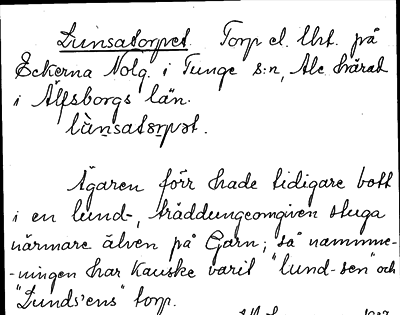 Lunsatorpet. Torp el. lht. på
Eckerna Nolg. i Tunge s:n, Ale härad
i Älfsborgs län.
lùnsatorpət.
Ägaren förr hade tidigare bott
i en lund-, träddungeomgiven stuga
närmare älven på Garn; "så" nammne-
-ningen har kanske varit "lund-sen" och
"Lunds'ens" torp.